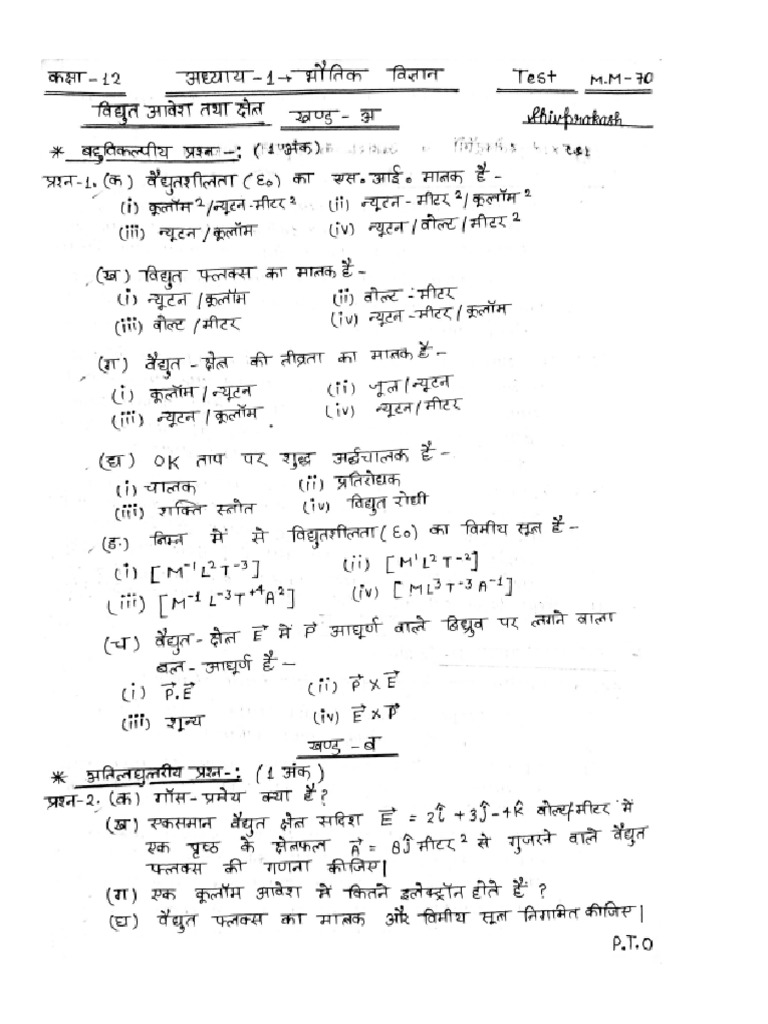 कक्षा-12 अध्याय-1→ भौतिक विज्ञान Test M.M-70
विद्युत आवेश तथा क्षेत्र खण्ड-अ Shivprakash
* बहुविकल्पीय प्रश्न-: (1 अंक)
प्रश्न-1. (क) वैद्युतशीलता (ε₀) का एस॰ आई॰ मानक है-
(i) कूलॉम²/न्यूटन-मीटर² (ii) न्यूटन-मीटर²/कूलॉम²
(iii) न्यूटन/कूलॉम (iv) न्यूटन/वोल्ट/मीटर²
(ख) विद्युत फ्लक्स का मानक है-
(i) न्यूटन/कूलॉम (ii) वोल्ट-मीटर
(iii) वोल्ट/मीटर (iv) न्यूटन-मीटर/कूलॉम
(ग) वैद्युत-क्षेत्र की तीव्रता का मानक है-
(i) कूलॉम/न्यूटन (ii) जूल/न्यूटन
(iii) न्यूटन/कूलॉम (iv) न्यूटन/मीटर
(घ) 0K ताप पर शुद्ध अर्द्धचालक है-
(i) चालक (ii) प्रतिरोधक
(iii) शक्ति स्त्रोत (iv) विद्युत रोधी
(ङ.) निम्न में से विद्युतशीलता (ε₀) का विमीय सूत्र है-
(i) [M⁻¹L²T⁻³] (ii) [M¹L²T⁻²]
(iii) [M⁻¹L⁻³T⁺⁴A²] (iv) [ML³T⁻³A⁻¹]
(च) वैद्युत-क्षेत्र E⃗ में P⃗ आघूर्ण वाले द्विध्रुव पर लगने वाला
बल-आघूर्ण है-
(i) P⃗.E⃗ (ii) P⃗×E⃗
(iii) शून्य (iv) E⃗×P⃗
खण्ड-ब
* अतिलघुत्तरीय प्रश्न-: (1 अंक)
प्रश्न-2. (क) गॉस-प्रमेय क्या है?
(ख) एकसमान वैद्युत क्षेत्र सदिश E⃗ = 2î+3ĵ-4k̂ वोल्ट/मीटर में
एक पृष्ठ के क्षेत्रफल A⃗ = 8ĵ मीटर² से गुजरने वाले वैद्युत
फ्लक्स की गणना कीजिए|
(ग) एक कूलॉम आवेश में कितने इलेक्ट्रॉन होते हैं?
(घ) वैद्युत फ्लक्स का मानक और विमीय सूत्र निगमित कीजिए|
P.T.O